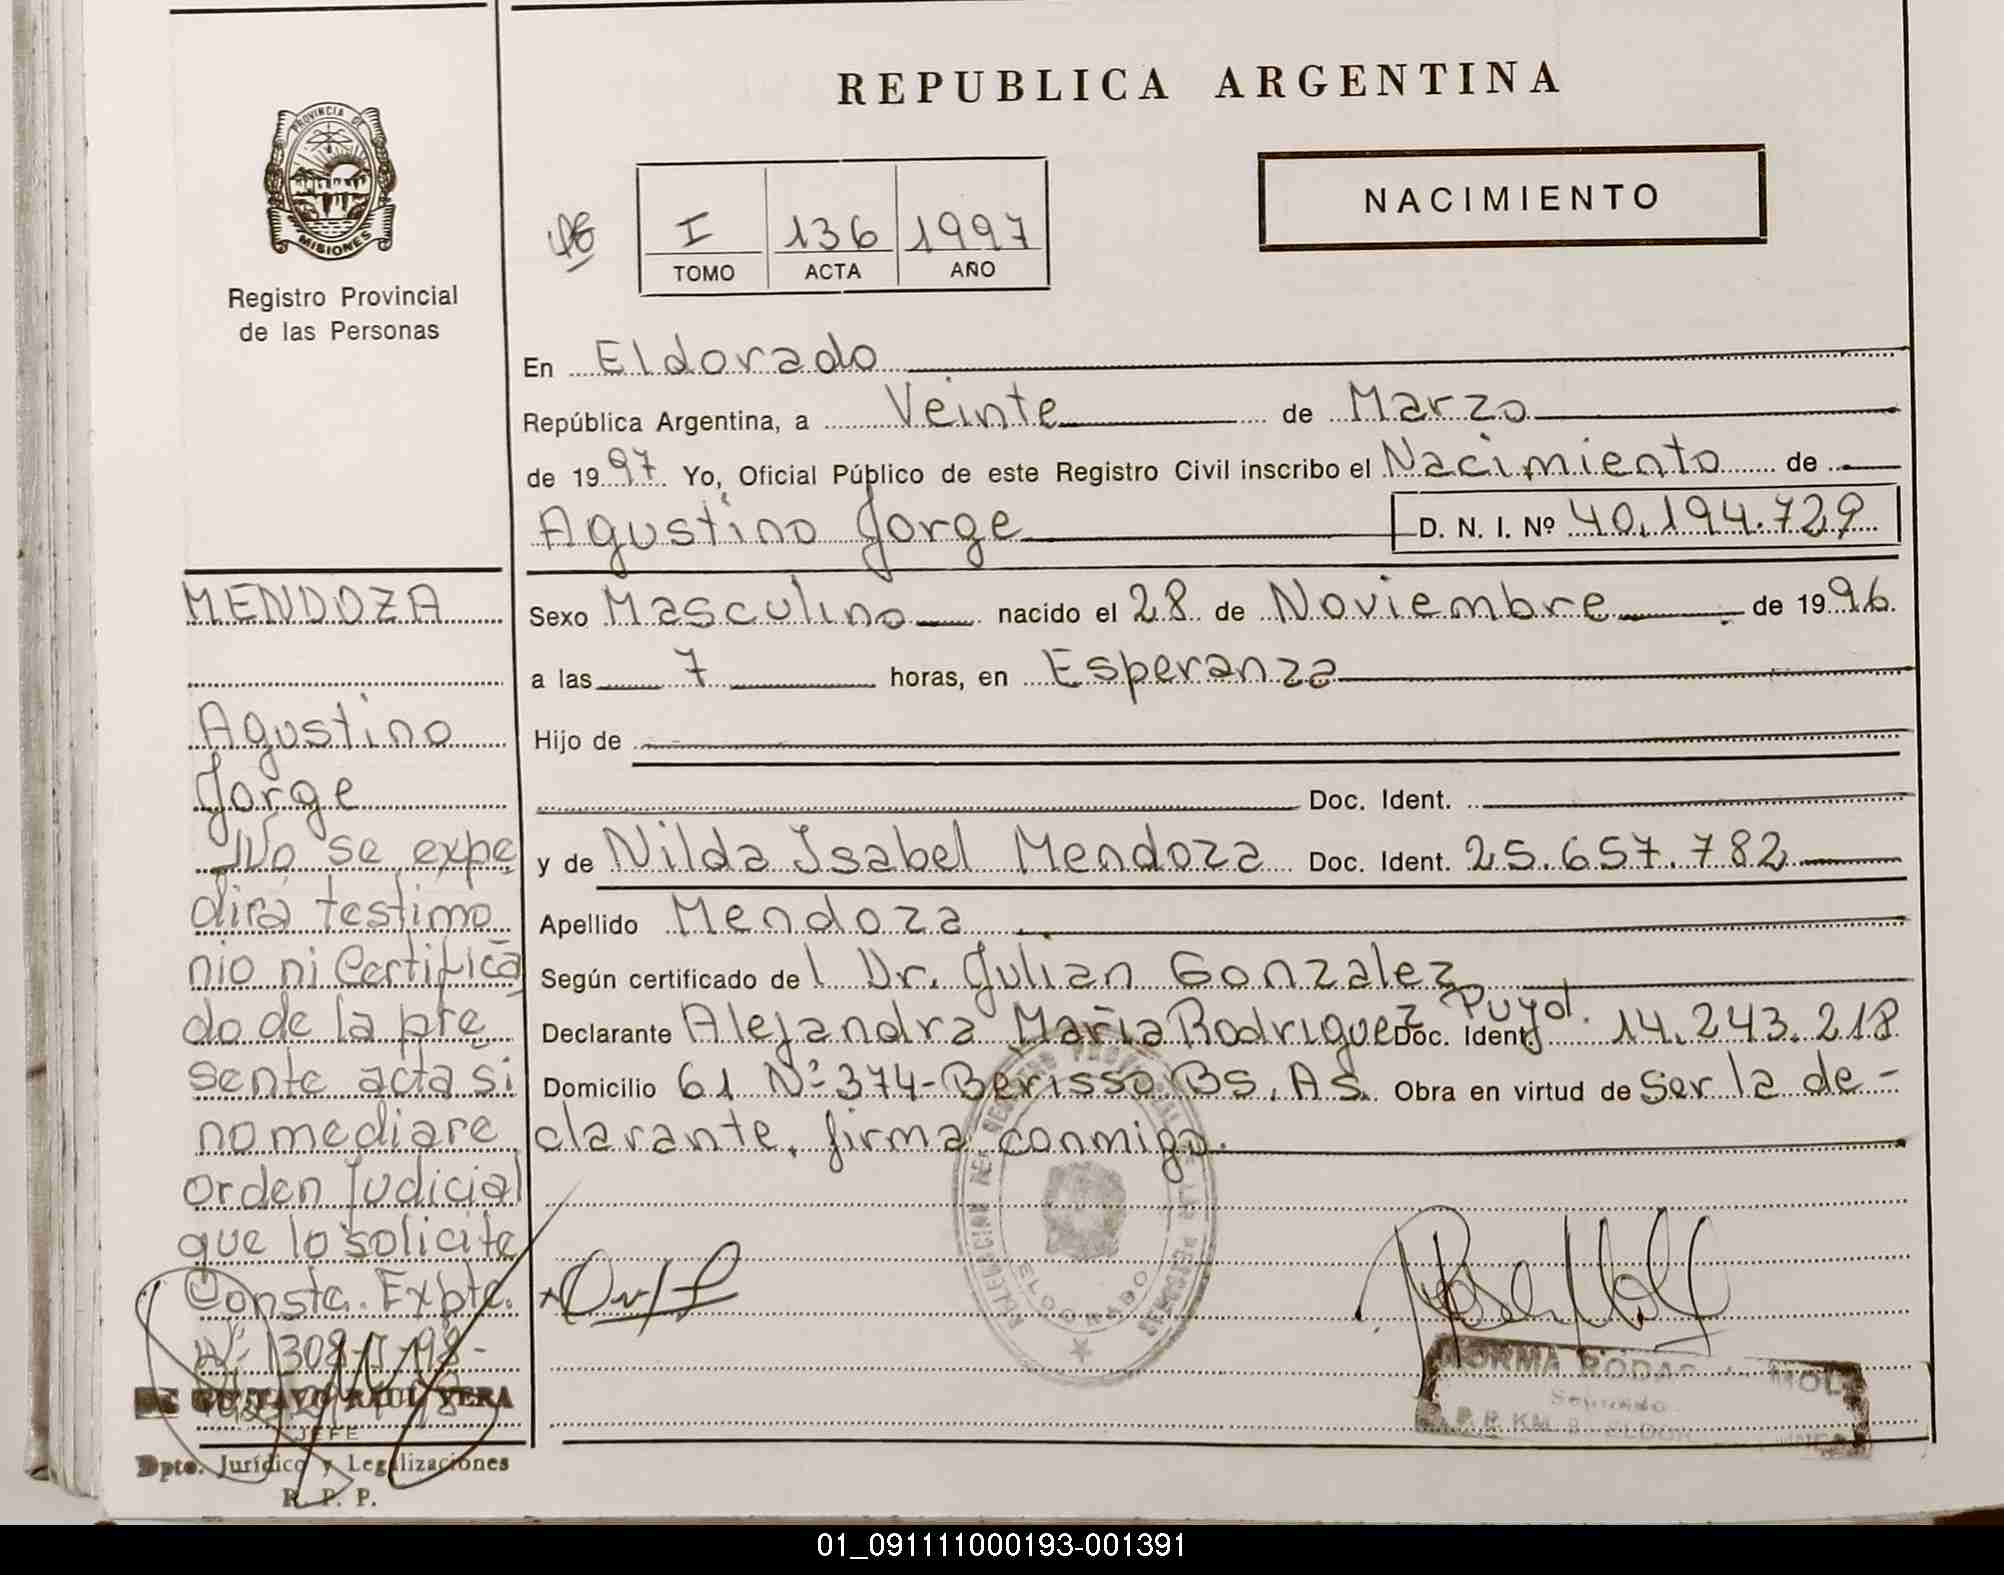 PROVINCIA DE
MISIONES
Registro Provincial
de las Personas
REPUBLICA ARGENTINA
NACIMIENTO
I 136 1997
TOMO ACTA AÑO
En Eldorado
República Argentina, a Veinte de Marzo
de 1997 Yo, Oficial Público de este Registro Civil inscribo el Nacimiento de
Agustino Jorge D. N. I. Nº 40.194.729
Sexo Masculino nacido el 28 de Noviembre de 1996
a las 7 horas, en Esperanza
Hijo de
Doc. Ident.
y de Nilda Isabel Mendoza Doc. Ident. 25.657.782
Apellido Mendoza
Según certificado del Dr. Julian Gonzalez
Declarante Alejandra Maria Rodriguez Puyol. Doc. Ident. 14.243.218
Domicilio 61 Nº 374-Berisso Bs. As. Obra en virtud de ser la de-
clarante, firma conmigo.
MENDOZA
Agustino
Jorge
No se expe
dirá testimo
nio ni Certifica
do de la pre
sente acta si
no mediare
orden Judicial
que lo solicite
Consta. Expte.
GUSTAVO RAUL VERA
JEFE
Dpto. Jurídico y Legalizaciones
R. P. P.
ELDORADO
NORMA
01_091111000193-001391